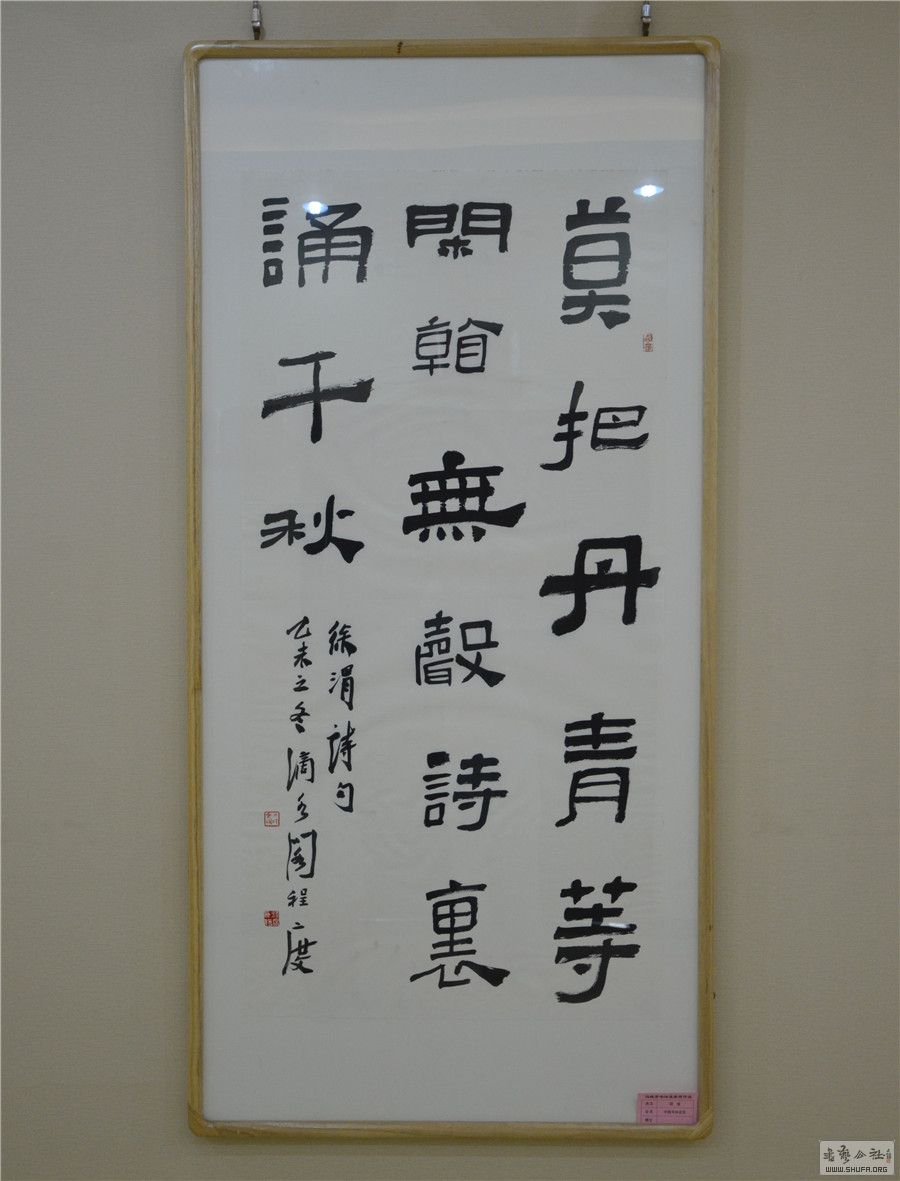 莫把丹青等
閑看無聲詩裏
誦千秋
徐渭詩句
乙未之冬滴水閣程度
書藝公社
WWW.SHUFA.ORG